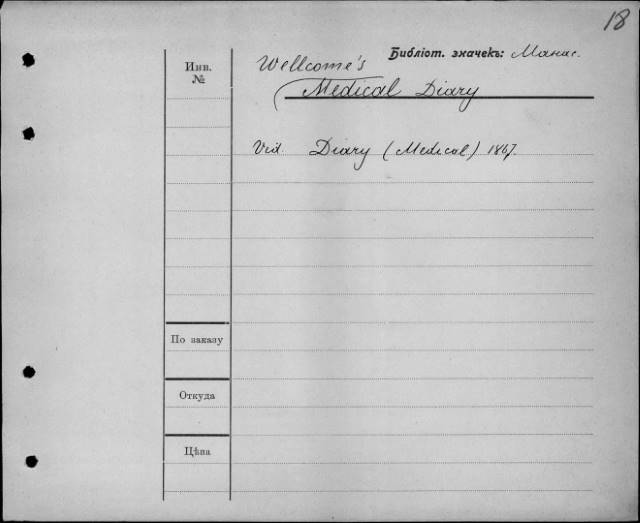 18
Библіот. значекъ: Манас.
Инв.
№
Wellcome's
Medical Diary
Vid. Diary (Medical) 1867.
По заказу
Откуда
Цѣна